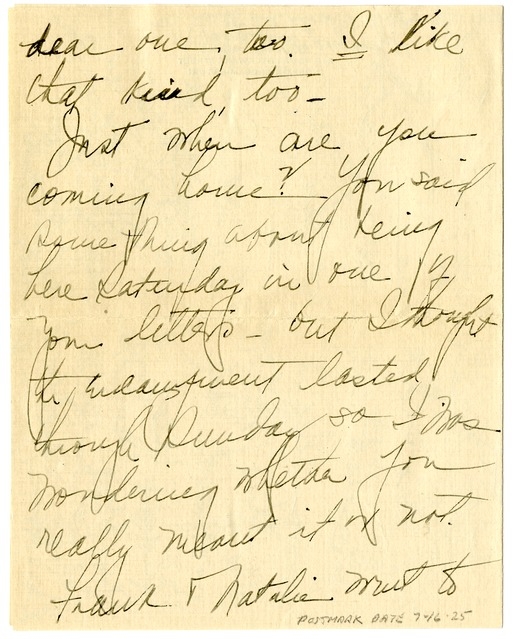 dear one, too. I like
that kind, too -
Just when are you
coming home? You said
some thing about being
here Saturday in one of
your letters - but I thought
the encampment lasted
through Sunday so I was
wondering whether you
really meant it or not.
Frank & Natalie went to
POSTMARK DATE 7-16-25